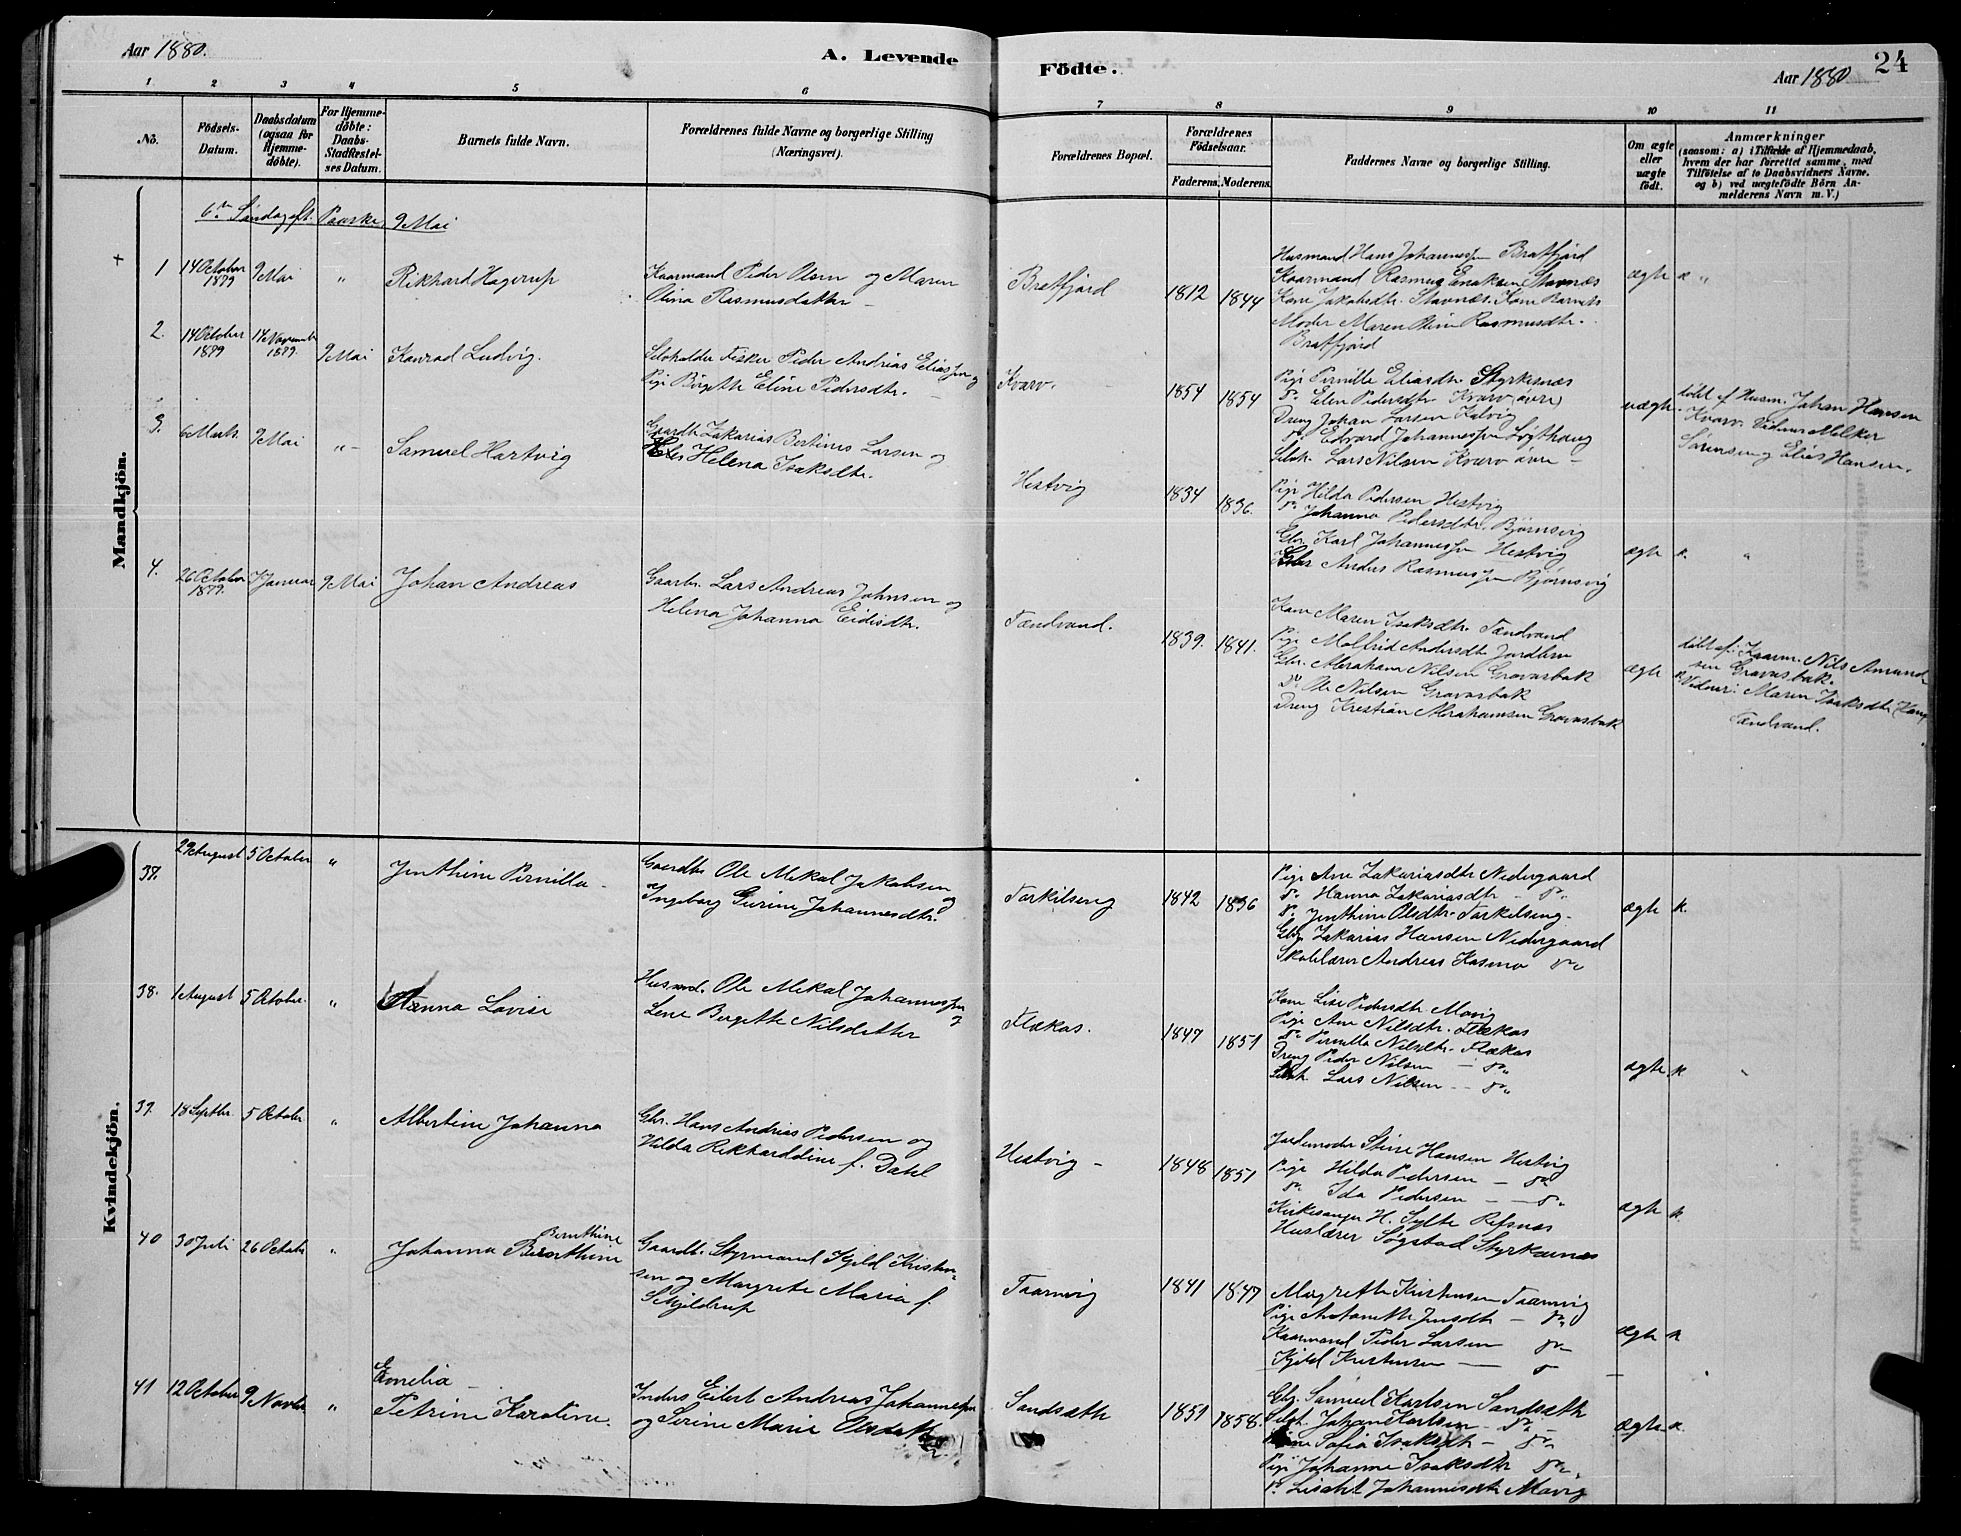 Aar 1880.
A. Levende
Födte.
Aar 1880
24
1 2 3 4 5 6 7 8 9 10 11
No.
Födsels-Datum.
Daabsdatum (ogsaa for Hjemme-döbte).
For Hjemme-döbte: Daabs-Stadfæstel-ses Datum.
Barnets fulde Navn.
Forældrenes fulde Navne og borgerlige Stilling (Næringsvei).
Forældrenes Bopæl.
Forældrenes Födselsaar.
Faderens. Moderens.
Faddernes Navne og borgerlige Stilling.
Om ægte eller uægte födt.
Anmærkninger
(saasom: a) i Tilfælde af Hjemmedaab,
hvem der har forrettet samme, med
Tilföielse af to Daabsvidners Navne.
og b) ved uægtefödte Börn An-
melderens Navn m. V.)
Mandkjön.
6te Søndag eft. Paaske, 9 Mai
1 14 October 1879 9 Mai " Rikhard Hagerup
Kaarmand Peder Olsen og Maren
Olina Rasmusdatter
Bratfjord 1812 1844
Husmand Hans Johannessen Bratfjord
Kaarmand Rasmus Enoksen Stavnæs
Kone Jakobsdtr. Stavnæs. Kone Barnets
Moder Maren Oline Rasmusdtr.
Bratfjord
ægte "
2. 14 October 1879 14 November 1879. 9 Mai Konrad Ludvig.
Selvholder Fisker Peder Andreas Eliassen og
Pige Birgitte Eline Pedersdtr.
Kvarv 1854 1854
Pige Pernille Eliasdtr Styrkesnæs
do Elen Pedersdtr Kvarv (øvre)
Dreng Johan Larsen Kalvig
do Edvard Johannessen Løgthaug
Selvh. Lars Nilsen Kvarv øvre
uægte
döbt af Husm. Johan Hansen
Kvarv. Vidner Melker
Sørensen og Elias Hansen.
3. 6 Marts 9 Mai " Samuel Hartvig
Gaardb. Zakarias Bertinus Larsen og
Helena Isaksdtr.
Hestvig 1834 1836.
Pige Hilda Pedersen Hestvig
do Johanna Pedersdtr. Bjørnsvig
Gbr. Karl Johannessen Hestvig
Anders Rasmussen Bjørnsvig
ægte k. "
4. 26 October 1879. 7 Januar 9 Mai Johan Andreas
Gaardbr. Lars Andreas Johnsen og
Helena Johanna Eidisdtr.
Tændvand. 1839. 1841.
Kone Maren Isaksdtr. Tændvand
Pige Malfrid Andersdtr Jordbru
Gbr. Abraham Nilsen Gravasbak
do Ole Nilsen Gravasbak
Dreng Kristian Abrahamsen Gravasbak
ægte k
döbt af: Kaarm. Nils Amund-
sen Gravasbak.
Vidner: Maren Isaksdtr (Kone)
Tændvand.
Kvindekjön.
37. 29 August 5 October " Jenthine Pernilla
Gaardb. Ole Mikal Jakobsen og
Ingeborg Gurine Johannesdtr.
Torkilseng 1842 1836
Pige Ane Zakariasdtr Nedergaard
do Hanna Zakariasdtr do
do Jenthine Olsdtr Torkilseng
Gbr. Zakarias Hansen Nedergaard
Skolelærer Andreas Kasmo do
ægte k.
38. 1 August 5 October " Hanna Lovise
Husmd. Ole Mikal Johannessen og
Lene Bergitte Nilsdatter
Flekas. 1847 1851
Kone Lise Pedersdtr Mavig
Pige Ane Nilsdtr. Flekas
do Pernilla Nilsdtr. Flekas
Dreng Peder Nilsen — do
Selvh. Lars Nilsen — do
ægte k
39. 18 Septbr. 5 October " Albertine Johanna
Gbr. Hans Andrias Pedersen og
Hilda Rikharddine f. Dahl
Hestvig 1848 1851
Jordemoder Stine Hansen Hestvig
Pige Hilda Pedersen — do
do Ida Pedersen — do
Kirkesanger H. Sylte Refsnæs
Huslærer Søgstad Styrkesnæs
ægte k.
40 30 Juli 26 October " Johanna Bernthine
Bernthine
Gaardb. Styrmand Kjeld Kristen-
sen og Margrete Maria f.
Schjeldrup
Taarnvig 1841 1847
Margrethe Kristensen Taarnvig
Pige Antonette Jensdtr — do
Kaarmand Peder Larsen do
Kjeld Kristensen — do
ægte k
41 12 October 9 Novbr "
Emelia
Petrine Karoline.
Inders Eilert Andreas Johannessen
og Serine Marie Olsdatt
Sandsæth 1851 1858.
Gbr. Samuel Karlsen Sandsæth
Selvh. Johan Karlsen — do
Sofia Isaksdtr — do
Pige Johanne Isaksdtr do
do Lisabet Johannesdtr Mavig
ægte k